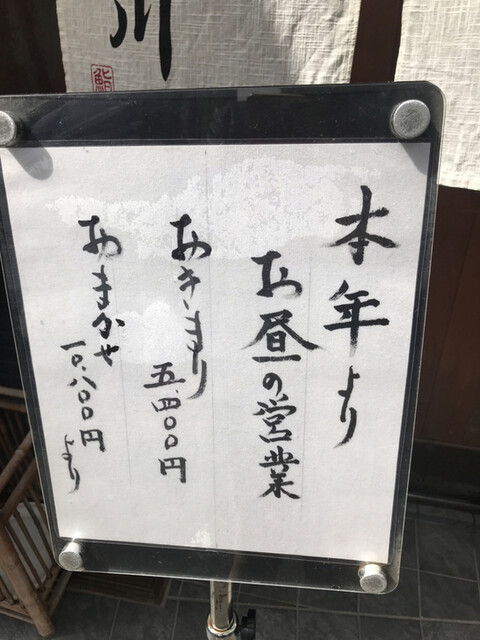 川
鮨
本年より
お昼の営業
おきまり
五.四〇〇円
おまかせ
一〇.八〇〇円
より